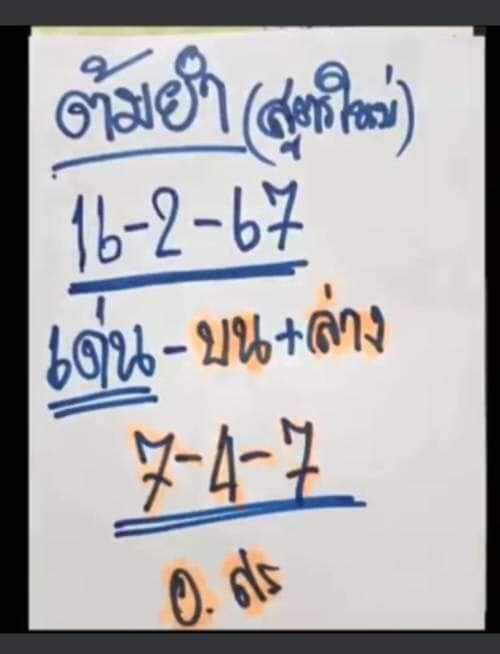 ต้มยำ (สูตรใหม่)
16-2-67
เด่น - บน + ล่าง
7-4-7
อ. ศร